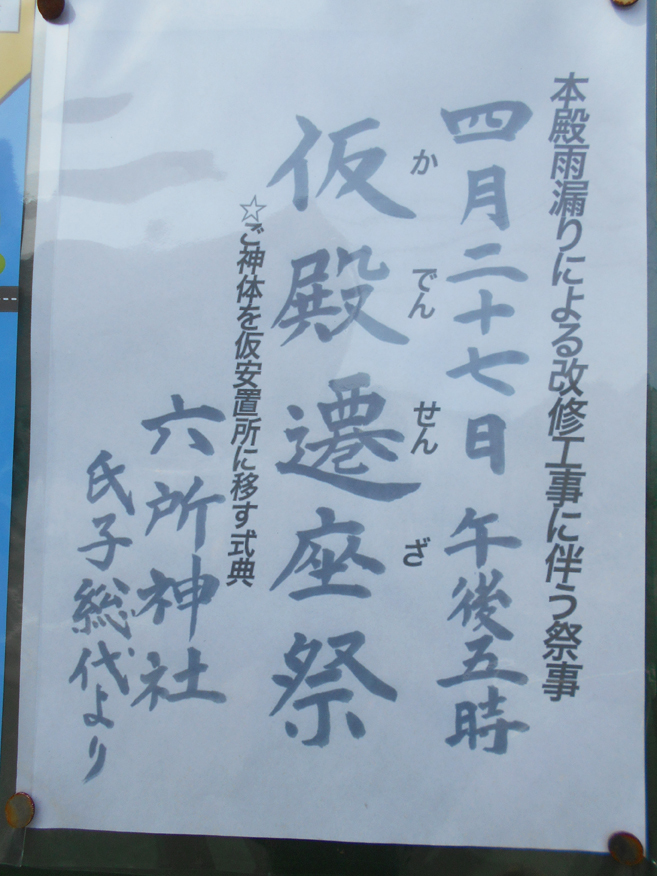 本殿雨漏りによる改修工事に伴う祭事
四月二十七日 午後五時
かでんせんざ
仮殿遷座祭
☆ご神体を仮安置所に移す式典
六所神社
氏子総代より